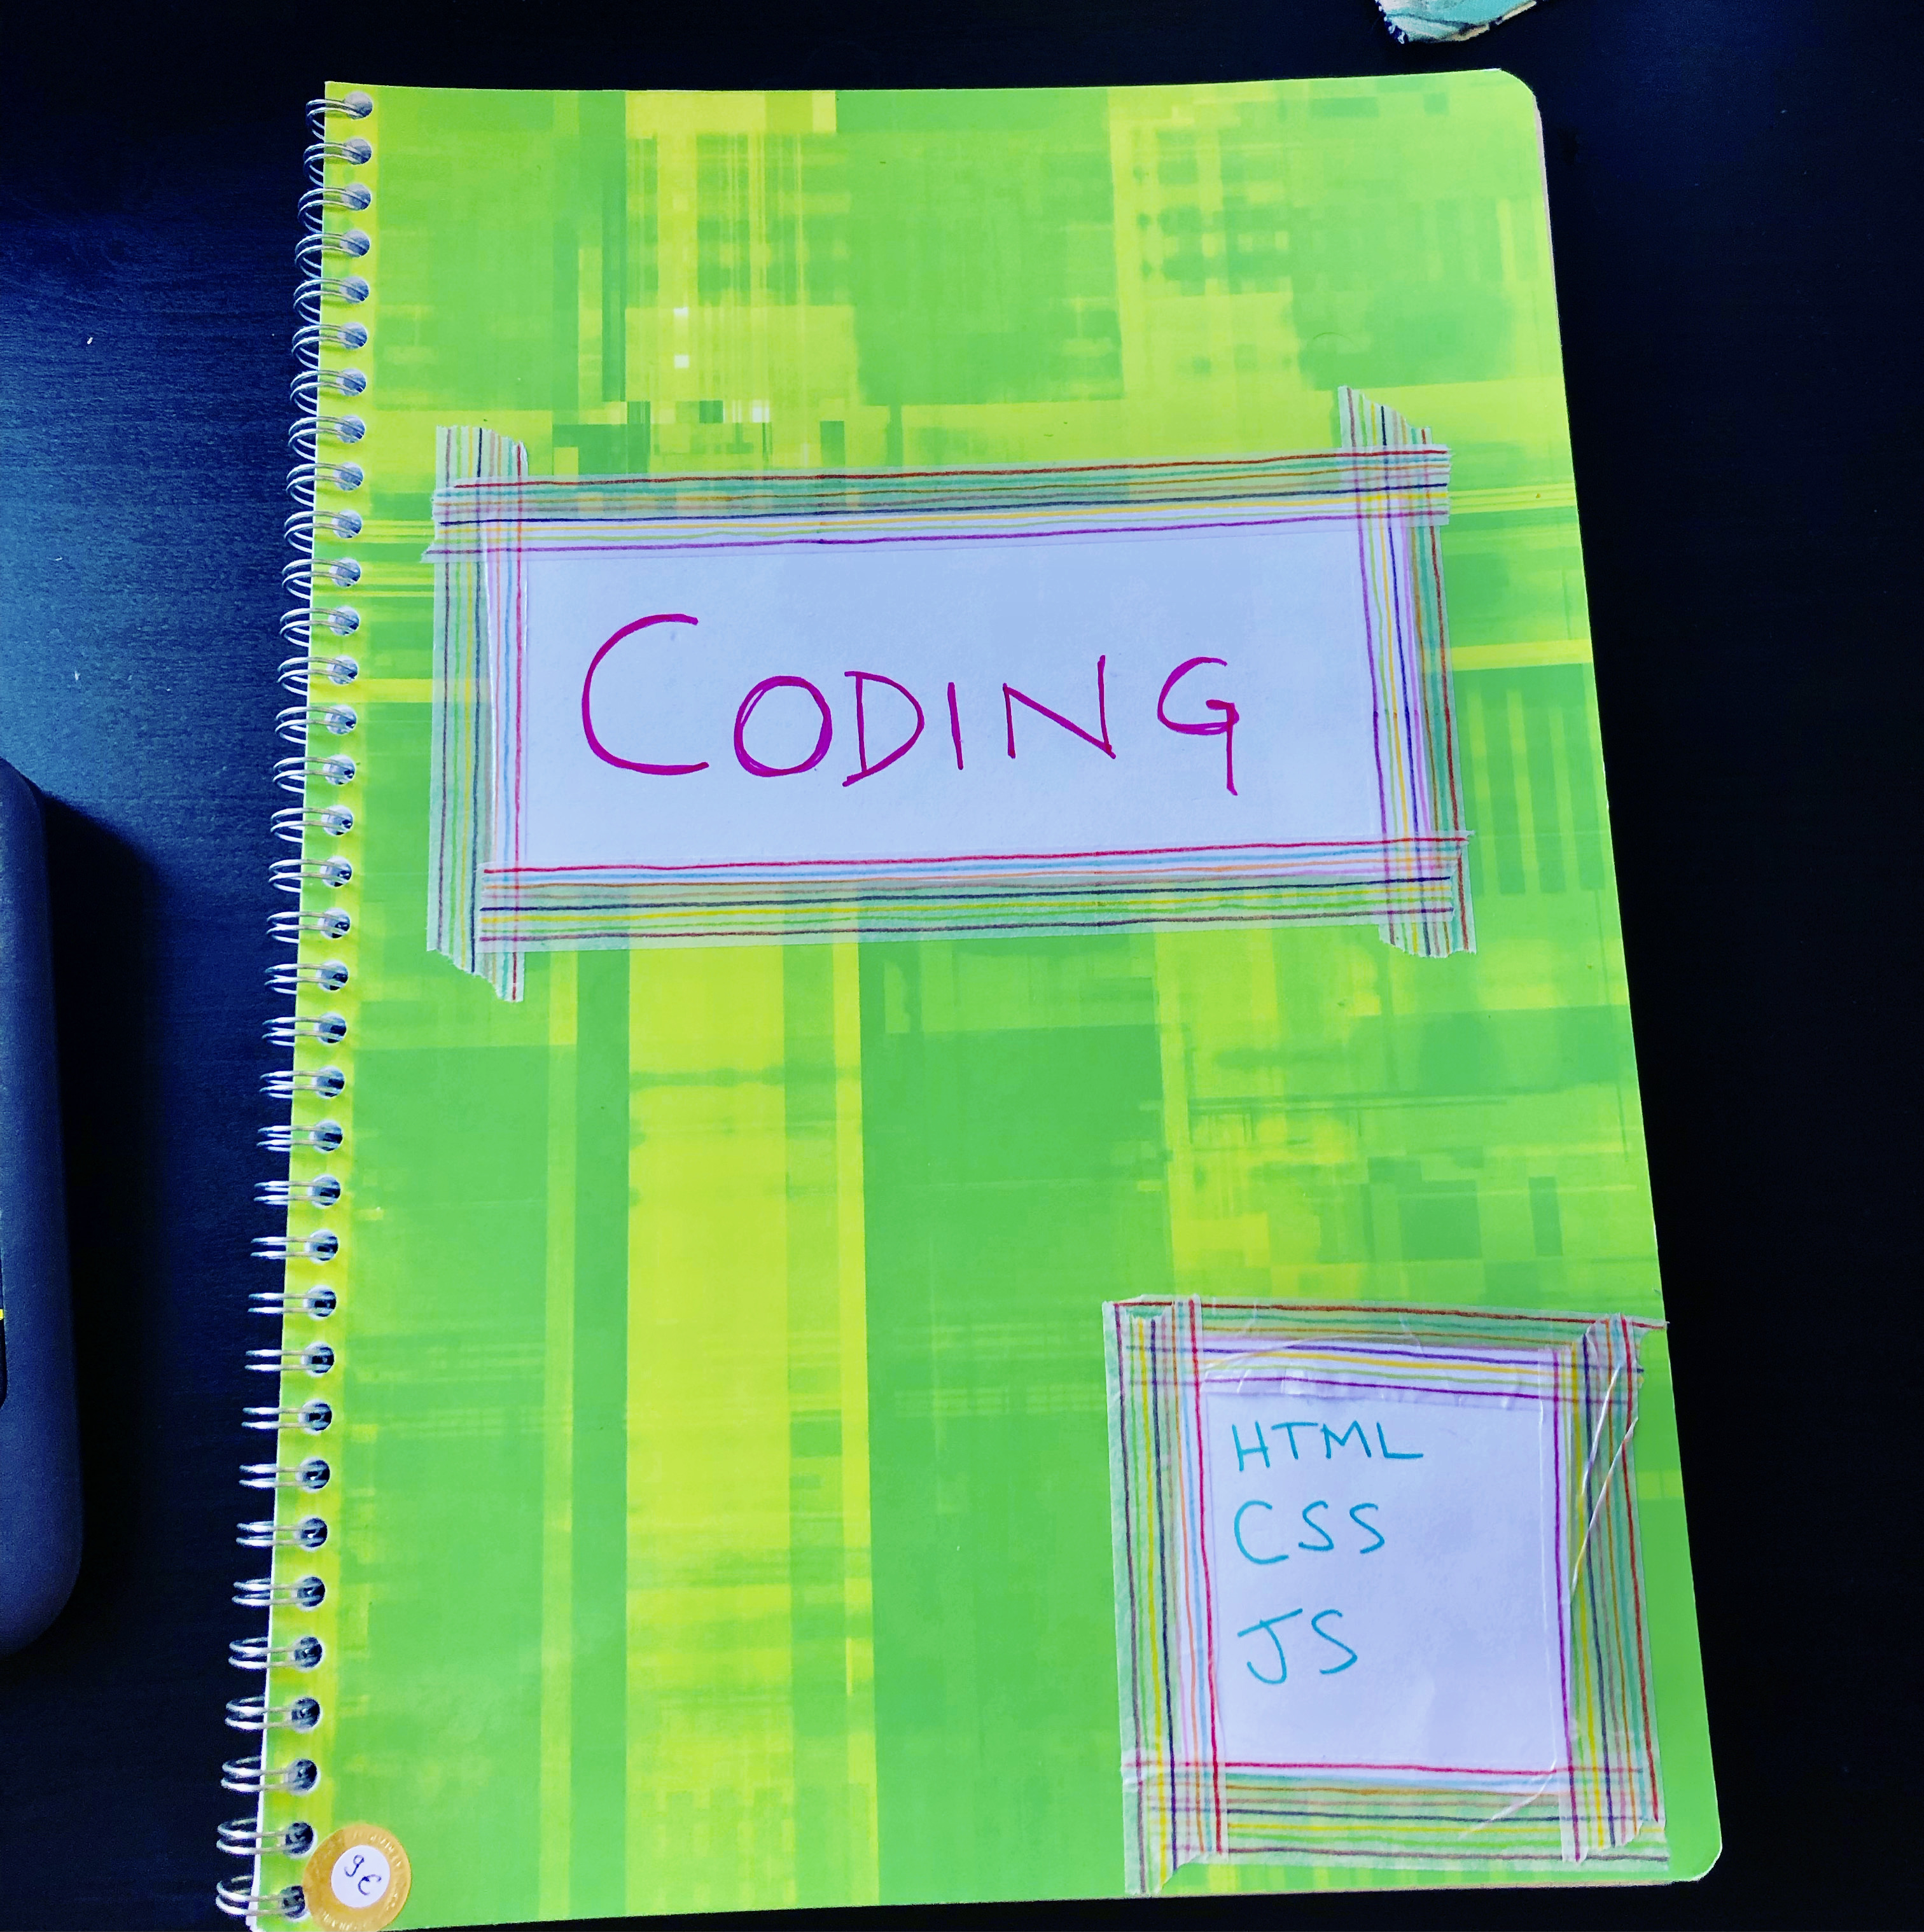 CODING
HTML
CSS
JS